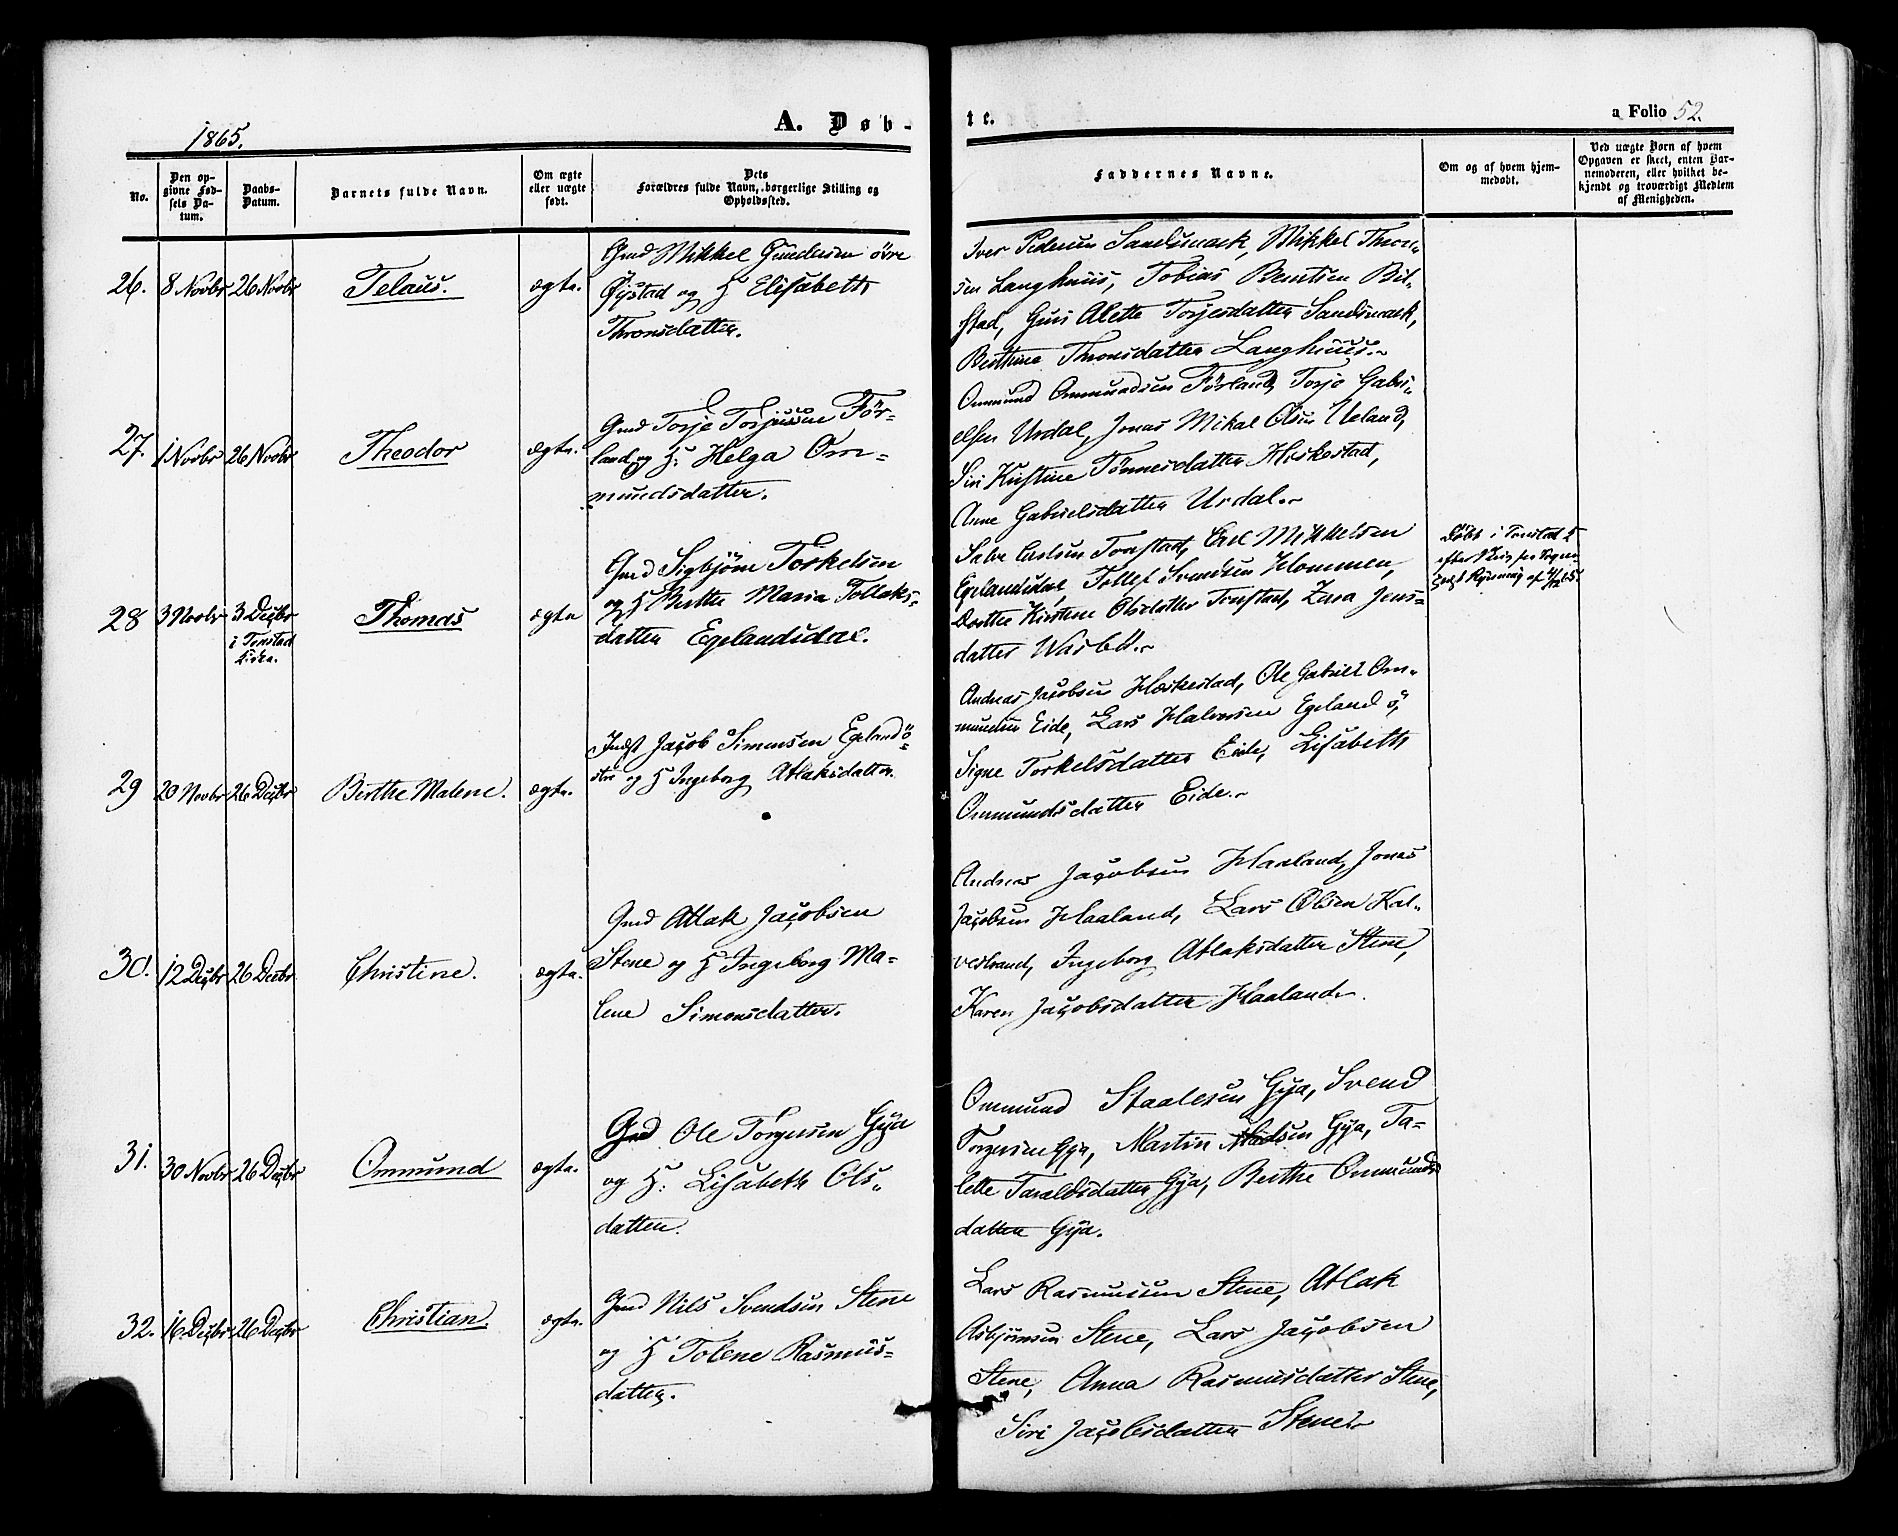 1865.
A. Døb-
te.
a Folio 52.
No.
Den op-
givne Fød-
sels Da-
tum.
Daabs-
Datum.
Barnets fulde Navn.
Om ægte
eller uægte
født.
Dets
Forældres fulde Navn, borgerlige Stilling og
Opholdssted.
Faddernes Navne.
Om og af hvem hjem-
medøbt.
Ved uægte Børn af hvem
Opgaven er skeet, enten Bar-
nemoderen, eller hvilket be-
kjendt og troværdigt Medlem
af Menigheden.
26.
8 Novbr
26 Novbr
Telaus.
ægta.
Gmd Mikkel Gundersen övre
Öystad og H Elisabeth
Thronsdatter.
Iver Pedersen Sandsmark, Mikkel Thron-
sen Langhuus, Tobias Berntsen Bil-
stad, Guri Alette Torjesdatter Sandsmark,
Berthine Thronsdatter Langhuus.
27.
1 Novbr
26 Novbr
Theodor
ægta.
Gmd Torje Torjussen För-
land og H. Helga Om-
mundsdatter.
Ommund Ommundsen Förland, Torjo Gabri-
elsen Urdal, Jonas Mikal Olsen Ueland,
Siri Kirstine Tönnesdatter Heskestad,
Anne Gabrielsdatter Urdal.
28
3 Novbr
3 Decbr
i Tonstad
Kirka.
Thomas
ægta
Gmd Sigbjörn Torkelsen
og H Berthe Maria Tollaks-
datter Egelandsdal.
Salve Tonstad, Mikkelsen
Egelandsdal, Tollef Svendsen Hommen,
Dorthe Kirstine Olsdatter Tonstad, Jens-
datter
Döbt i Tonstad
efter
29
20 Novbr
26 Decbr
Berthe Malene.
ægta.
Indst Jacob Simonsen Egeland ö-
stre og H Ingeborg Atlaksdatter
Andreas Jacobsen Heskestad, Ole Gabriel Om-
mundsen Eide, Lars Halvorsen Egeland ö,
Signe Torkelsdatter Eide, Lisabeth
Ommundsdatter Eide.
30.
12 Decbr
26 Decbr
Christine.
ægta.
Gmd Atlak Jacobsen
Stene og H Ingeborg Ma-
lene Simonsdatter.
Andreas Jacobsen Haaland, Jonas
Jacobsen Haaland, Lars Olsen Kal-
vestrand, Ingeborg Atlaksdatter Stene,
Karen Jacobsdatter Haaland.
31.
30 Novbr
26 Decbr
Ommund
ægta.
Gmd Ole Torgersen Gya
og H: Lisabeth Ols-
datter.
Ommund Staalesen Gya, Svend
Torgersen Gya, Martin Gya, Ta-
lette Taraldsdatter Gya, Berthe Ommunds
datter Gya.
32.
16 Decbr
26 Decbr
Christian.
ægta.
Gmd Nils Svendsen Stene
og H Tolene Rasmus-
datter.
Lars Rasmusen Stene, Atlak
Asbjörnsen Stene, Lars Jacobsen
Stene, Anna Rasmusdatter Stene,
Siri Jacobsdatter Stene.